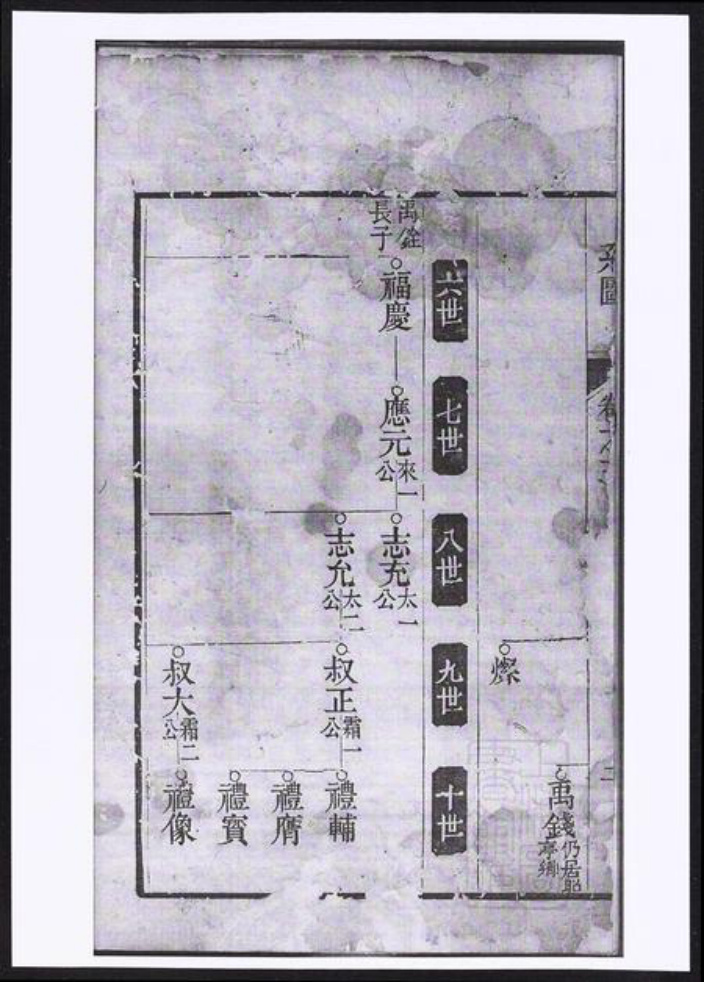 系圖
卷六
二
禹錢 仍居昭亭鄉
燦
六世
七世
八世
九世
十世
禹銓長子
福慶
應元 來一公
志充 太一公
志允 太二公
叔正 霜一公
禮輔
禮膺
禮賓
叔大 霜二公
禮像